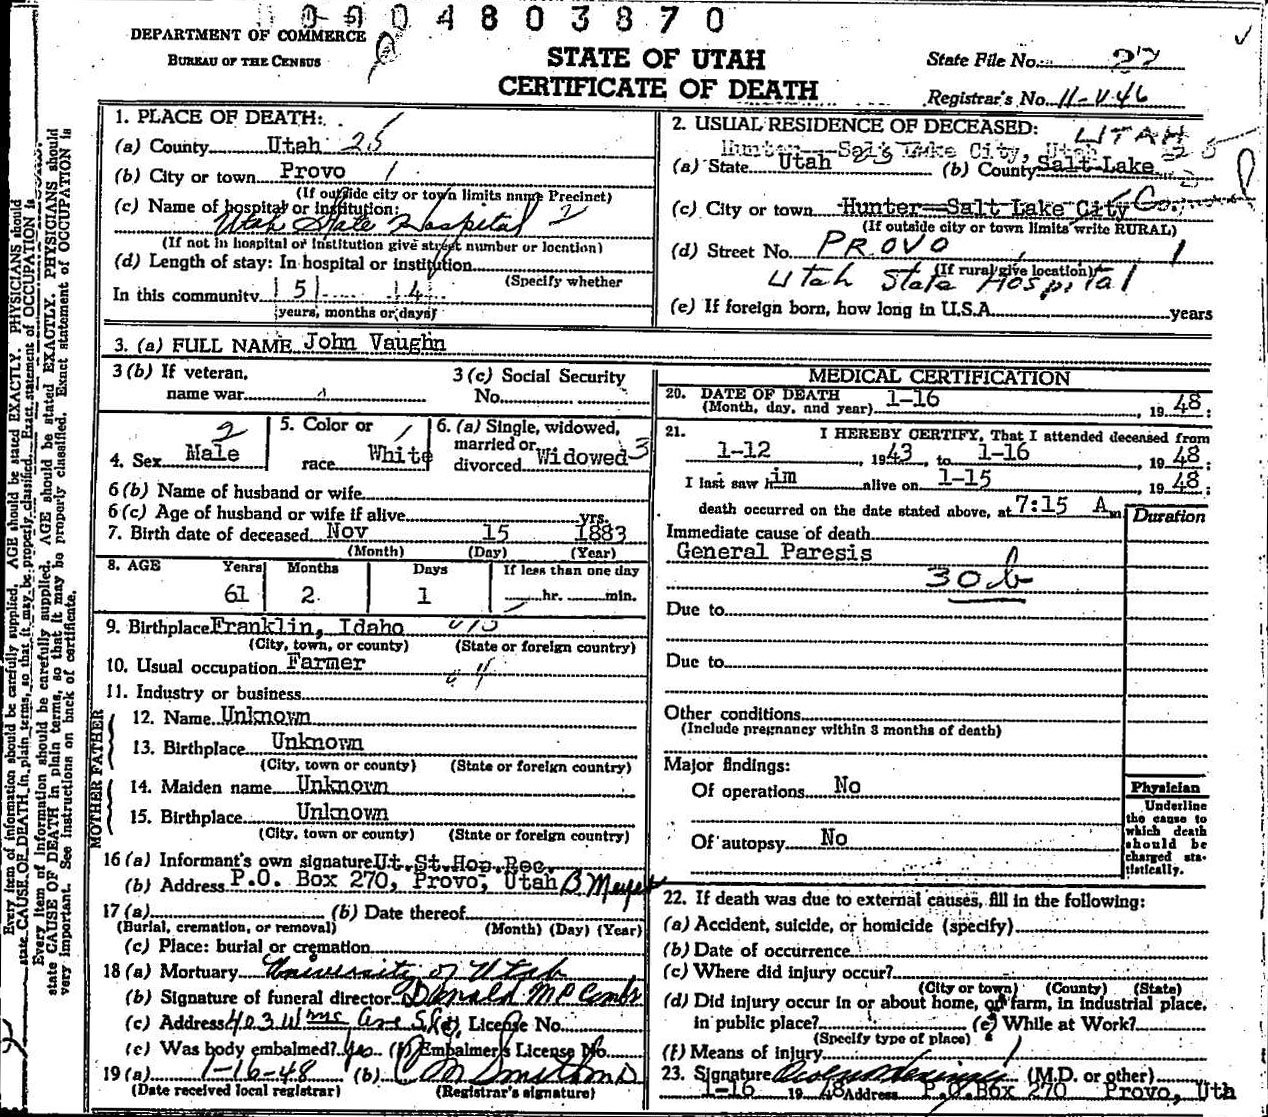 0004803870
DEPARTMENT OF COMMERCE
BUREAU OF THE CENSUS
STATE OF UTAH
CERTIFICATE OF DEATH
State File No. 27
Registrar's No. 11-V-46
1. PLACE OF DEATH:
(a) County Utah 25
(b) City or town Provo 1
(If outside city or town limits name Precinct)
(c) Name of hospital or institution:
Utah State Hospital 2
(If not in hospital or institution give street number or location)
(d) Length of stay: In hospital or institution
(Specify whether
In this community 5 14
years, months or days)
2. USUAL RESIDENCE OF DECEASED: UTAH
Hunter - Salt Lake City, Utah
(a) State Utah (b) County Salt Lake 25
(c) City or town Hunter-Salt Lake City
(If outside city or town limits write RURAL)
(d) Street No. PROVO 1
(If rural give location)
Utah State Hospital
(e) If foreign born, how long in U.S.A. years
3. (a) FULL NAME John Vaughn
3 (b) If veteran,
name war
3 (c) Social Security
No.
4. Sex Male 2
5. Color or
race White 1
6. (a) Single, widowed,
married or
divorced Widowed 3
6 (b) Name of husband or wife
6 (c) Age of husband or wife if alive yrs.
7. Birth date of deceased Nov 15 1883
(Month) (Day) (Year)
8. AGE Years Months Days If less than one day
61 2 1 hr. min.
9. Birthplace Franklin, Idaho
(City, town, or county) (State or foreign country)
10. Usual occupation Farmer
11. Industry or business
FATHER
12. Name Unknown
13. Birthplace Unknown
(City, town or county) (State or foreign country)
MOTHER
14. Maiden name Unknown
15. Birthplace Unknown
(City, town or county) (State or foreign country)
16 (a) Informant's own signature Ut. St. Hop. Rec.
(b) Address P.O. Box 270, Provo, Utah
17 (a) (b) Date thereof
(Burial, cremation, or removal) (Month) (Day) (Year)
(c) Place: burial or cremation
18 (a) Mortuary University of Utah
(b) Signature of funeral director Donald
(c) Address 403 Wmc Ave License No.
(e) Was body embalmed? Yes (f) Embalmer's License No.
19 (a) 1-16-48 (b)
(Date received local registrar) (Registrar's signature)
MEDICAL CERTIFICATION
20. DATE OF DEATH
(Month, day, and year) 1-16, 1948:
21. I HEREBY CERTIFY, That I attended deceased from
1-12, 1943, to 1-16, 1948:
I last saw him alive on 1-15 1948:
death occurred on the date stated above, at 7:15 A m
Duration
Immediate cause of death
General Paresis
30b
Due to
Due to
Other conditions
(Include pregnancy within 3 months of death)
Major findings:
Of operations No
Of autopsy No
Physician
Underline
the cause to
which death
should be
charged sta-
tistically.
22. If death was due to external causes, fill in the following:
(a) Accident, suicide, or homicide (specify)
(b) Date of occurrence
(c) Where did injury occur?
(City or town) (County) (State)
(d) Did injury occur in or about home, on farm, in industrial place,
in public place? (e) While at Work?
(Specify type of place)
(f) Means of injury
23. Signature (M.D. or other)
1-16 1948 Address P.O.Box 270 Provo, Uta
Every item of information should be carefully supplied. AGE should be stated EXACTLY. PHYSICIANS should
state CAUSE OF DEATH in plain terms, so that it may be properly classified. Exact statement of OCCUPATION is
Every item of information should be carefully supplied. AGE should be stated EXACTLY. PHYSICIANS should
state CAUSE OF DEATH in plain terms, so that it may be properly classified. Exact statement of OCCUPATION is
very important. See instructions on back of certificate.